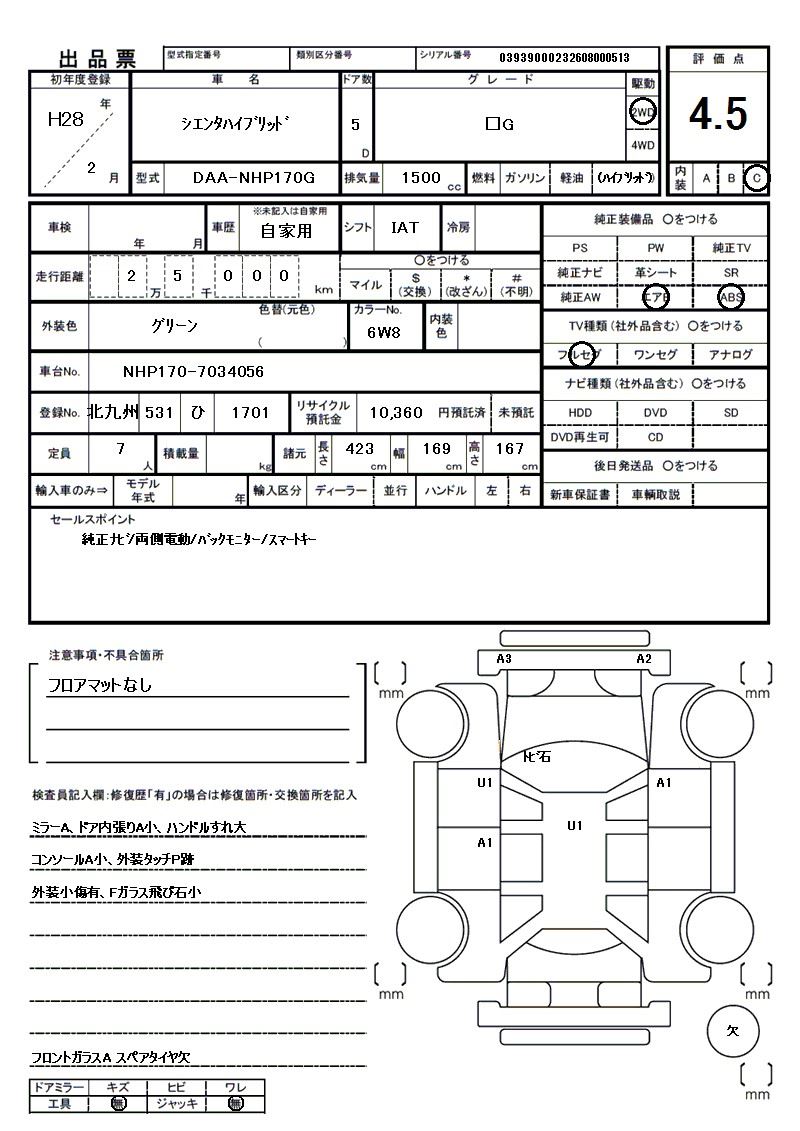 出品票 型式指定番号 類別区分番号 シリアル番号 03939000232608000513
評価点
4.5
初年度登録 車名 ドア数 グレード 駆動
H28 年 シエンタハイブリッド 5 D 囗G 2WD
2 月 4WD
型式 DAA-NHP170G 排気量 1500 cc 燃料 ガソリン 軽油 (ハイブリッド) 内装 A B C
車検 年 月 車歴 ※未記入は自家用 自家用 シフト IAT 冷房
純正装備品 ○をつける
PS PW 純正TV
走行距離 2 万 5 千 000 km ○をつける マイル $(交換) *(改ざん) #(不明)
純正ナビ 革シート SR
純正AW エアB ABS
外装色 グリーン 色替(元色) ( ) カラーNo. 6W8 内装色
TV種類(社外品含む) ○をつける
フルセグ ワンセグ アナログ
車台No. NHP170-7034056
ナビ種類(社外品含む) ○をつける
登録No. 北九州 531 ひ 1701 リサイクル預託金 10,360 円預託済 未預託
HDD DVD SD
DVD再生可 CD
定員 7 人 積載量 kg 諸元 長さ 423 cm 幅 169 cm 高さ 167 cm
後日発送品 ○をつける
輸入車のみ⇒ モデル年式 年 輸入区分 ディーラー 並行 ハンドル 左 右
新車保証書 車輌取説
セールスポイント
純正ナビ/両側電動/バックモニター/スマートキー
注意事項・不具合箇所
フロアマットなし
A3 A2
mm mm
トビ石
U1 A1
U1
A1
mm mm
欠
mm
検査員記入欄:修復歴「有」の場合は修復箇所・交換箇所を記入
ミラーA、ドア内張りA小、ハンドルすれ大
コンソールA小、外装タッチP跡
外装小傷有、Fガラス飛び石小
フロントガラスA スペアタイヤ欠
ドアミラー キズ ヒビ ワレ
工具 無 ジャッキ 無